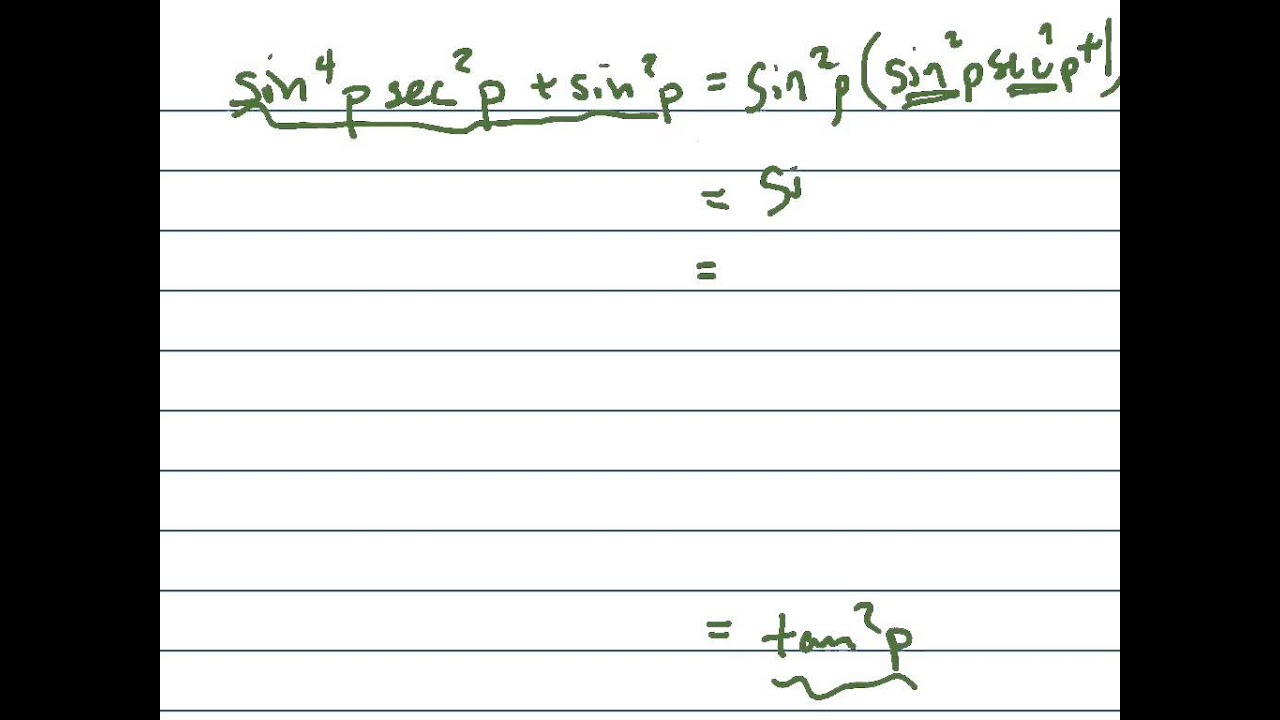 sin⁴p sec²p + sin²p = sin²p(sin²p sec²p+1)
= Si
=
= tan²p